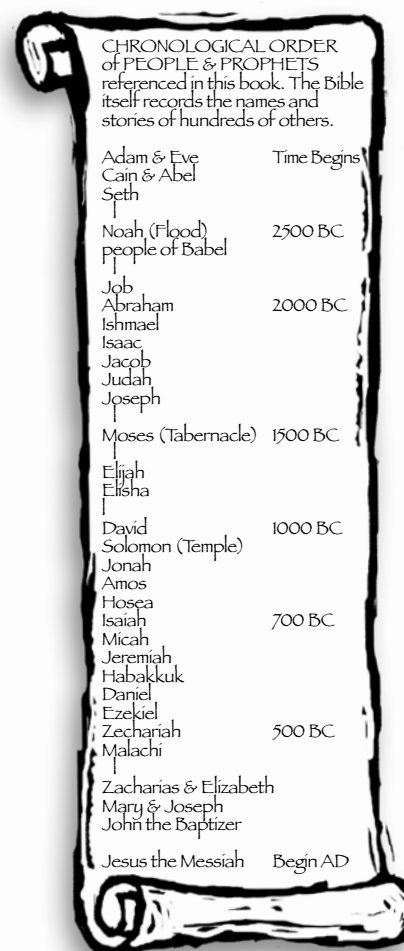 CHRONOLOGICAL ORDER
of PEOPLE & PROPHETS
referenced in this book. The Bible
itself records the names and
stories of hundreds of others.
Adam & Eve Time Begins
Cain & Abel
Seth
|
Noah (Flood) 2500 BC
people of Babel
|
Job
Abraham 2000 BC
Ishmael
Isaac
Jacob
Judah
Joseph
|
Moses (Tabernacle) 1500 BC
|
Elijah
Elisha
|
David 1000 BC
Solomon (Temple)
Jonah
Amos
Hosea
Isaiah 700 BC
Micah
Jeremiah
Habakkuk
Daniel
Ezekiel
Zechariah 500 BC
Malachi
|
Zacharias & Elizabeth
Mary & Joseph
John the Baptizer
Jesus the Messiah Begin AD